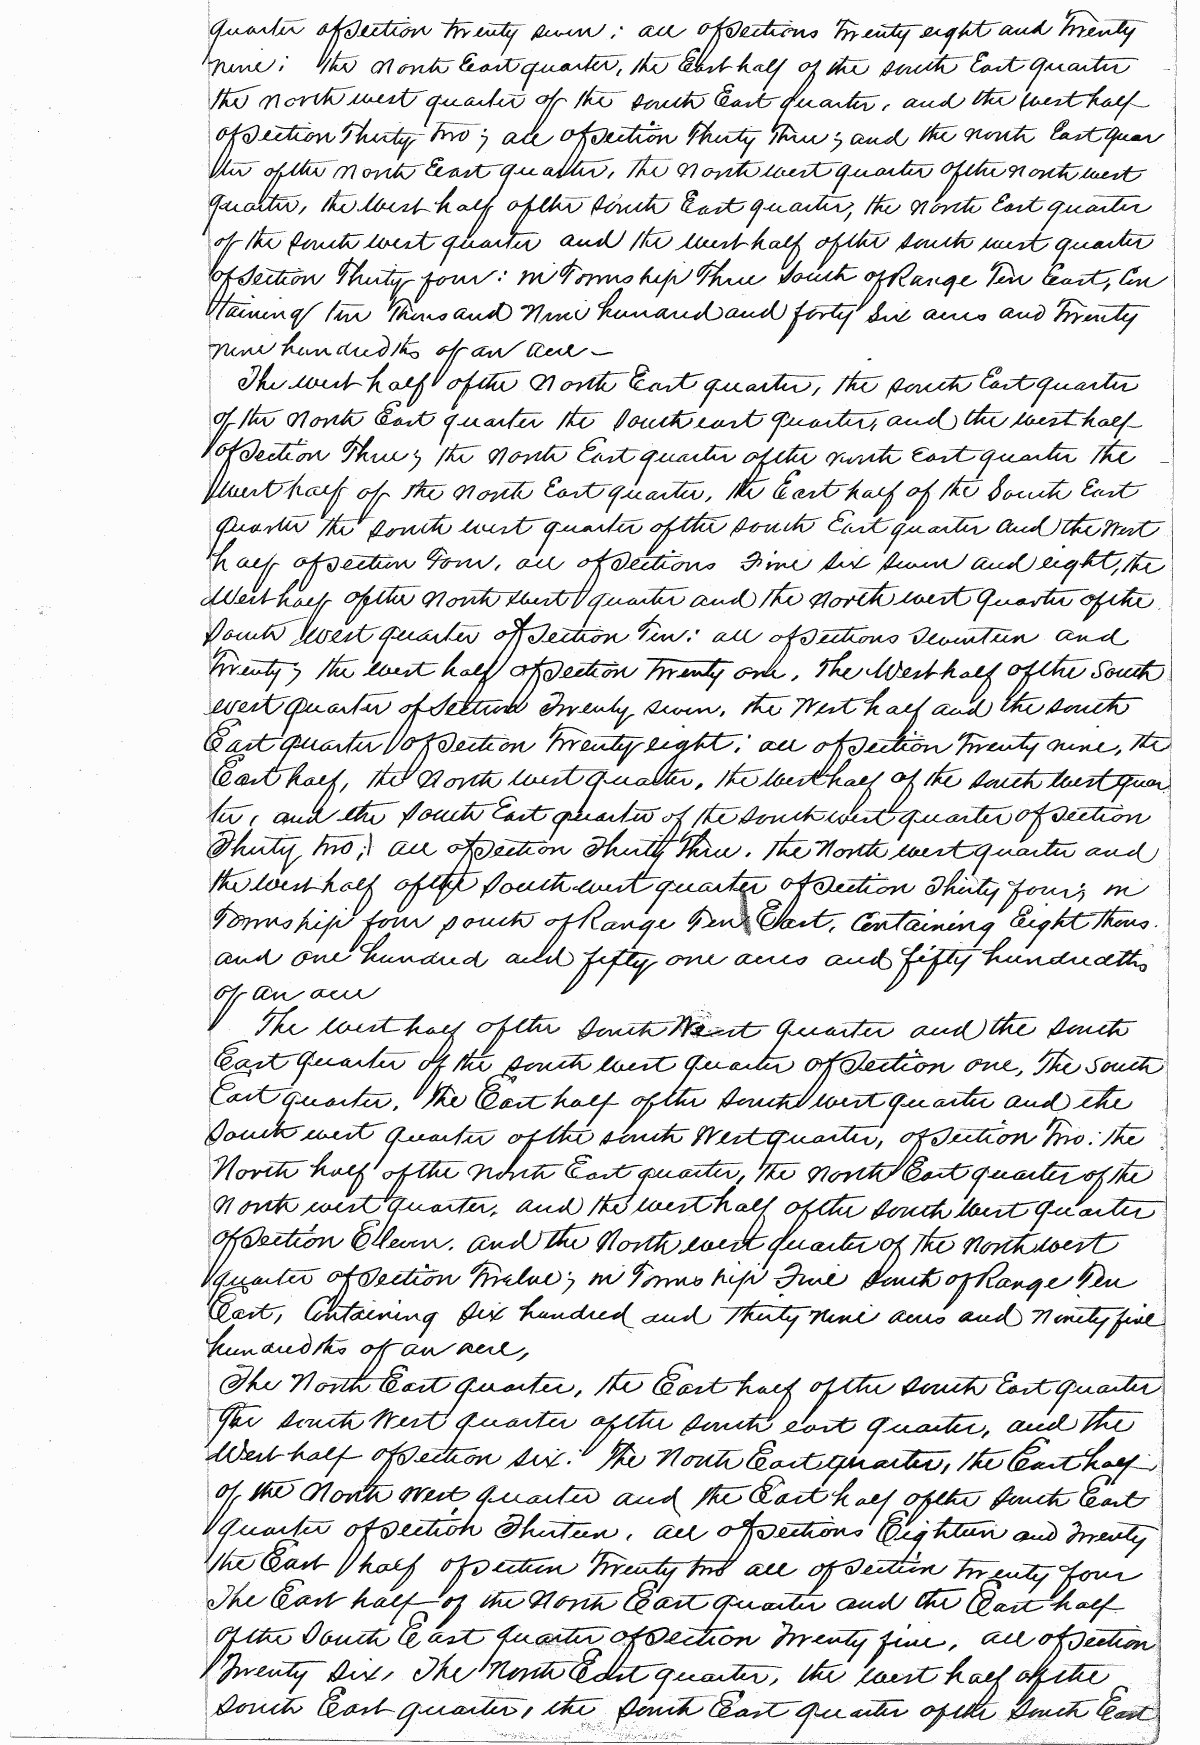 quarter of Section Twenty seven; all of Sections Twenty eight and Twenty
nine; the North East quarter, the East half of the South East quarter
the north west quarter of the South East quarter, and the West half
of Section Thirty Two; all of Section Thirty Three; and the north East quar
ter of the North East quarter, the North west quarter of the North west
quarter, the West half of the South East quarter, the North East quarter
of the South west quarter and the West half of the South west quarter
of Section Thirty four: in Township Three South of Range Ten East, Con
taining Ten Thousand Nine hundred and forty Six acres and Twenty
nine hundredths of an acre—
The west half of the North East quarter, the South East quarter
of the North East quarter the South east quarter, and the West half
of Section Three; the North East quarter of the North East quarter the
West half of the North East quarter, the East half of the South East
quarter the South west quarter of the South East quarter and the West
half of Section Four, all of Sections Five Six Seven and eight, the
West half of the North West quarter and the North west quarter of the
South West quarter of Section Ten: all of Sections Seventeen and
Twenty; the West half of Section Twenty one, The West half of the South
west quarter of Section Twenty seven, the West half and the South
East quarter of Section Twenty eight; all of Section Twenty nine, the
East half, the North West quarter, the West half of the South West quar
ter, and the South East quarter of the South west quarter of Section
Thirty Two; all of Section Thirty Three. the North west quarter and
the West half of the South west quarter of Section Thirty four; in
Township four South of Range Ten East, Containing Eight Thous.
and one hundred and fifty one acres and fifty hundredths
of an acre
The West half of the South West quarter and the South
East quarter of the South West quarter of Section one, The South
East quarter, The East half of the South west quarter and the
South west quarter of the South West quarter, of Section Two: the
North half of the North East quarter, the North East quarter of the
North west quarter, and the West half of the South West quarter
of Section Eleven. and the North west quarter of the North west
quarter of Section Twelve; in Township Five South of Range Ten
East, Containing Six hundred and Thirty Nine acres and Ninety five
hundredths of an acre,
The North East quarter, the East half of the South East quarter
The South West quarter of the South east quarter, and the
West half of Section Six. The North East quarter, the East half
of the North West quarter and the East half of the South East
quarter of Section Thirteen, all of Sections Eighteen and Twenty
the East half of Section Twenty Two all of Section Twenty four
The East half of the North East quarter and the East half
of the South East quarter of Section Twenty five, all of Section
Twenty Six, The North East quarter, the West half of the
South East quarter, the South East quarter of the South East